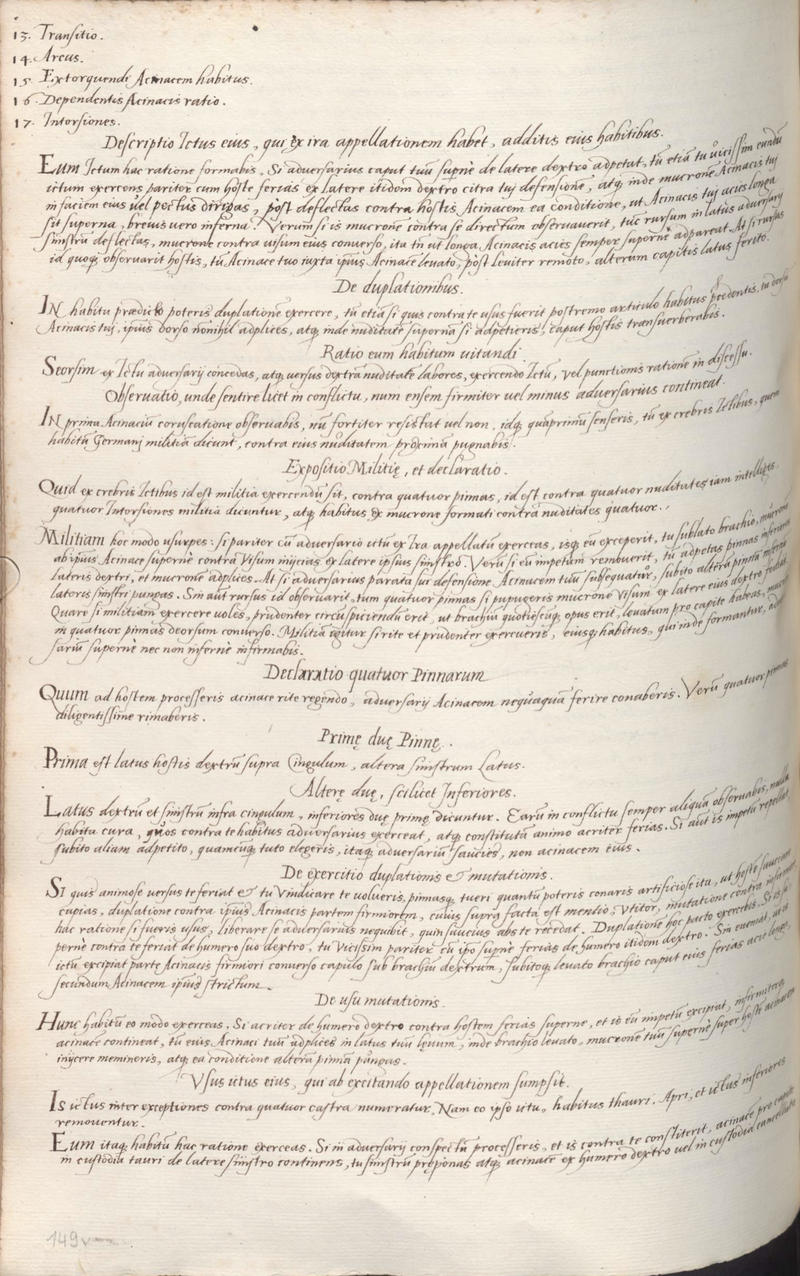 13. Transitio.
14. Arcus.
15. Extorquendi Acinacem habitus.
16. Dependentis Acinacis ratio.
17. Intorsiones.
Descriptio Ictus eius, qui ex ira appellationem habet, additis eius habitibus.
Eum Ictum hac ratione formabis. Si adversarius caput tuū supnè de latere dextro adpetat, tū etiā tu vicissim eundē
ictum exercens pariter cum hoste ferias ex latere itidem dextro citra tuj defensionē, atq; inde mucronē Acinacis tuj
in faciem eius vel pectus dirigas, post deflectas contra hostis Acinacem ea conditione, ut Acinacis tuj acies longa
sit superna, brevis vero inferna. Verum si is mucronē contra se directum observaverit, tūc rursum in latus adversarij
sinistrū deflectas, mucrone contra visum eius converso, ita tn̄ ut longa Acinacis acies semper supernè adpareat. At si rursus
id quoq; observarit hostis, tū Acinace tuo iuxta ipius Acinacē levato, post leviter remoto, alterum capitis latus ferito.
De duplationibus.
IN habitu prædicto poteris duplationē exercere, tū etiā si quis contra te usus fuerit postremo articulo habitus pcedentis, tu dorso
Acinacis tuj, ipius dorso nonihil adplices, atq; inde nuditatē supernā si adpetieris, caput hostis transverberabis.
Ratio eum habitum vitandi.
Seorsim ex Ictu adversarij concedas, atq; versus dextrā nuditatē labores, exercendo Ictū, vel punctionis rationē in discessu.
Observatio, unde sentire licet in conflictu, num ensem firmiter vel minus adversarius contineat.
IN prima Acinaciū coruscatione observabis, nū fortiter resistat vel non, idq; quāprimū senseris, tū ex crebris Ictibus, quem
habitū Germanj militiā dicunt, contra eius nuditatem proximā pugnabis.
Expositio Militię, et declaratio.
Quid ex crebris Ictibus id est militia exercendū sit, contra quatuor pinnas, id est contra quatuor nuditates iam intelliges.
quatuor Intorsiones militia dicuntur, atq; habitus ex mucrone formati contra nuditates quatuor.
Militiam hoc modo usurpes: si pariter cū adversario ictū ex Ira appellatū exerceas, isq; eū exceperit, tu sublato brachio, mucronē
ab ipius Acinace supernè contra Visum inijcias ex latere ipsius sinistro. Verū si eū impetum removerit, tū adpetas pinnas inferiores
lateris dextri, et mucronē adplices. At si adversarius parata sui defensione Acinacem tuū subsequatur, subito alterā pinnā inferiorē
lateris sinistri pungas. Sin aūt rursus id observarit, tum quatuor pinnas si pupugeris mucrone Visum ex latere eius dextro
Quare si militiam exercere voles, prudenter circūspiciendū erit, ut brachiū quotiescūq; opus erit, levatum pro capite habeas,
in quatuor pinnas deorsum converso. Militiā igitur si rite et prudenter exercueris, eiusq; habitus, qui inde formantur,
sariū supernè nec non infernè infirmabis.
Declaratio quatuor Pinnarum
Quum ad hostem processeris acinace rite regendo, adversarij Acinacem nequāquā ferire conaberis. Verū quatuor pinnas
diligentissime rimaberis.
Primę duę Pinnę.
Prima est latus hostis dextrū supra Cingulum, altera sinistrum Latus.
Alterę duę, scilicet Inferiores.
Latus dextrū et sinistrū infra cingulum, inferiores duę primę dicuntur. Earū in conflictu semper aliquā observabis, nulla
habita cura, quos contra te habitus adversarius exerceat, atq; constitutū animo acriter ferias. Si aūt is impetū repellat,
subito aliam adpetito, quamcūq; tuto elegeris, itaq; adversariū saucies, non acinacem eius.
De exercitio duplationis & mutationis.
Si quis animose versus te feriat & tu Vindicare te volueris, pinnasq; tueri quantū poteris conaris artificiose ita, ut hostē sauciare
cupias, duplatione contra ipius Acinacis partem firmiorem, cuius supra facta est mentio, Vtitor, mutatione contra
hac ratione si fueris usus, liberare se adversarius nequibit, quin saucius abs te recedat. Duplationē hoc pacto exercebis. Si is su
pernè contra te feriat de humero suo dextro, tu Vicissim pariter cū ipo supnè ferias de humero itidem dextro. Sin eveniat, ut is
ictū excipiat parte Acinacis firmiori converso capulo sub brachiū dextrum, subitoq; levato brachio caput eius ferias acie longa,
secundum Acinacem ipius strictum.
De usu mutationis.
Hunc habitū eo modo exerceas. Si acriter de humero dextro contra hostem ferias superne, et is eū impetū excipiat, infirmiterq;
acinacē contineat, tū eius Acinaci tuū adplices in latus tuū lęvum, inde brachio levato, mucronē tuū supernè super hostis acinacem
inijcere memineris, atq; ea conditione alterā pinnā pungas.
Vsus ictus eius, qui ab excitando appellationem sumpsit.
Is ictus inter exceptiones contra quatuor castra numeratur. Nam eo ipso ictu, habitus thauri. Apri, et ictus inferiores
removentur.
Eum itaq; habitū hac ratione exerceas. Si in adversarij conspectū processeris, et is contra te constiterit, acinacē pro capite
in custodia tauri de latere sinistro continens, tu sinistrū pręponas atq; acinacē ex humero dextro vel in custodia cancellata
149v